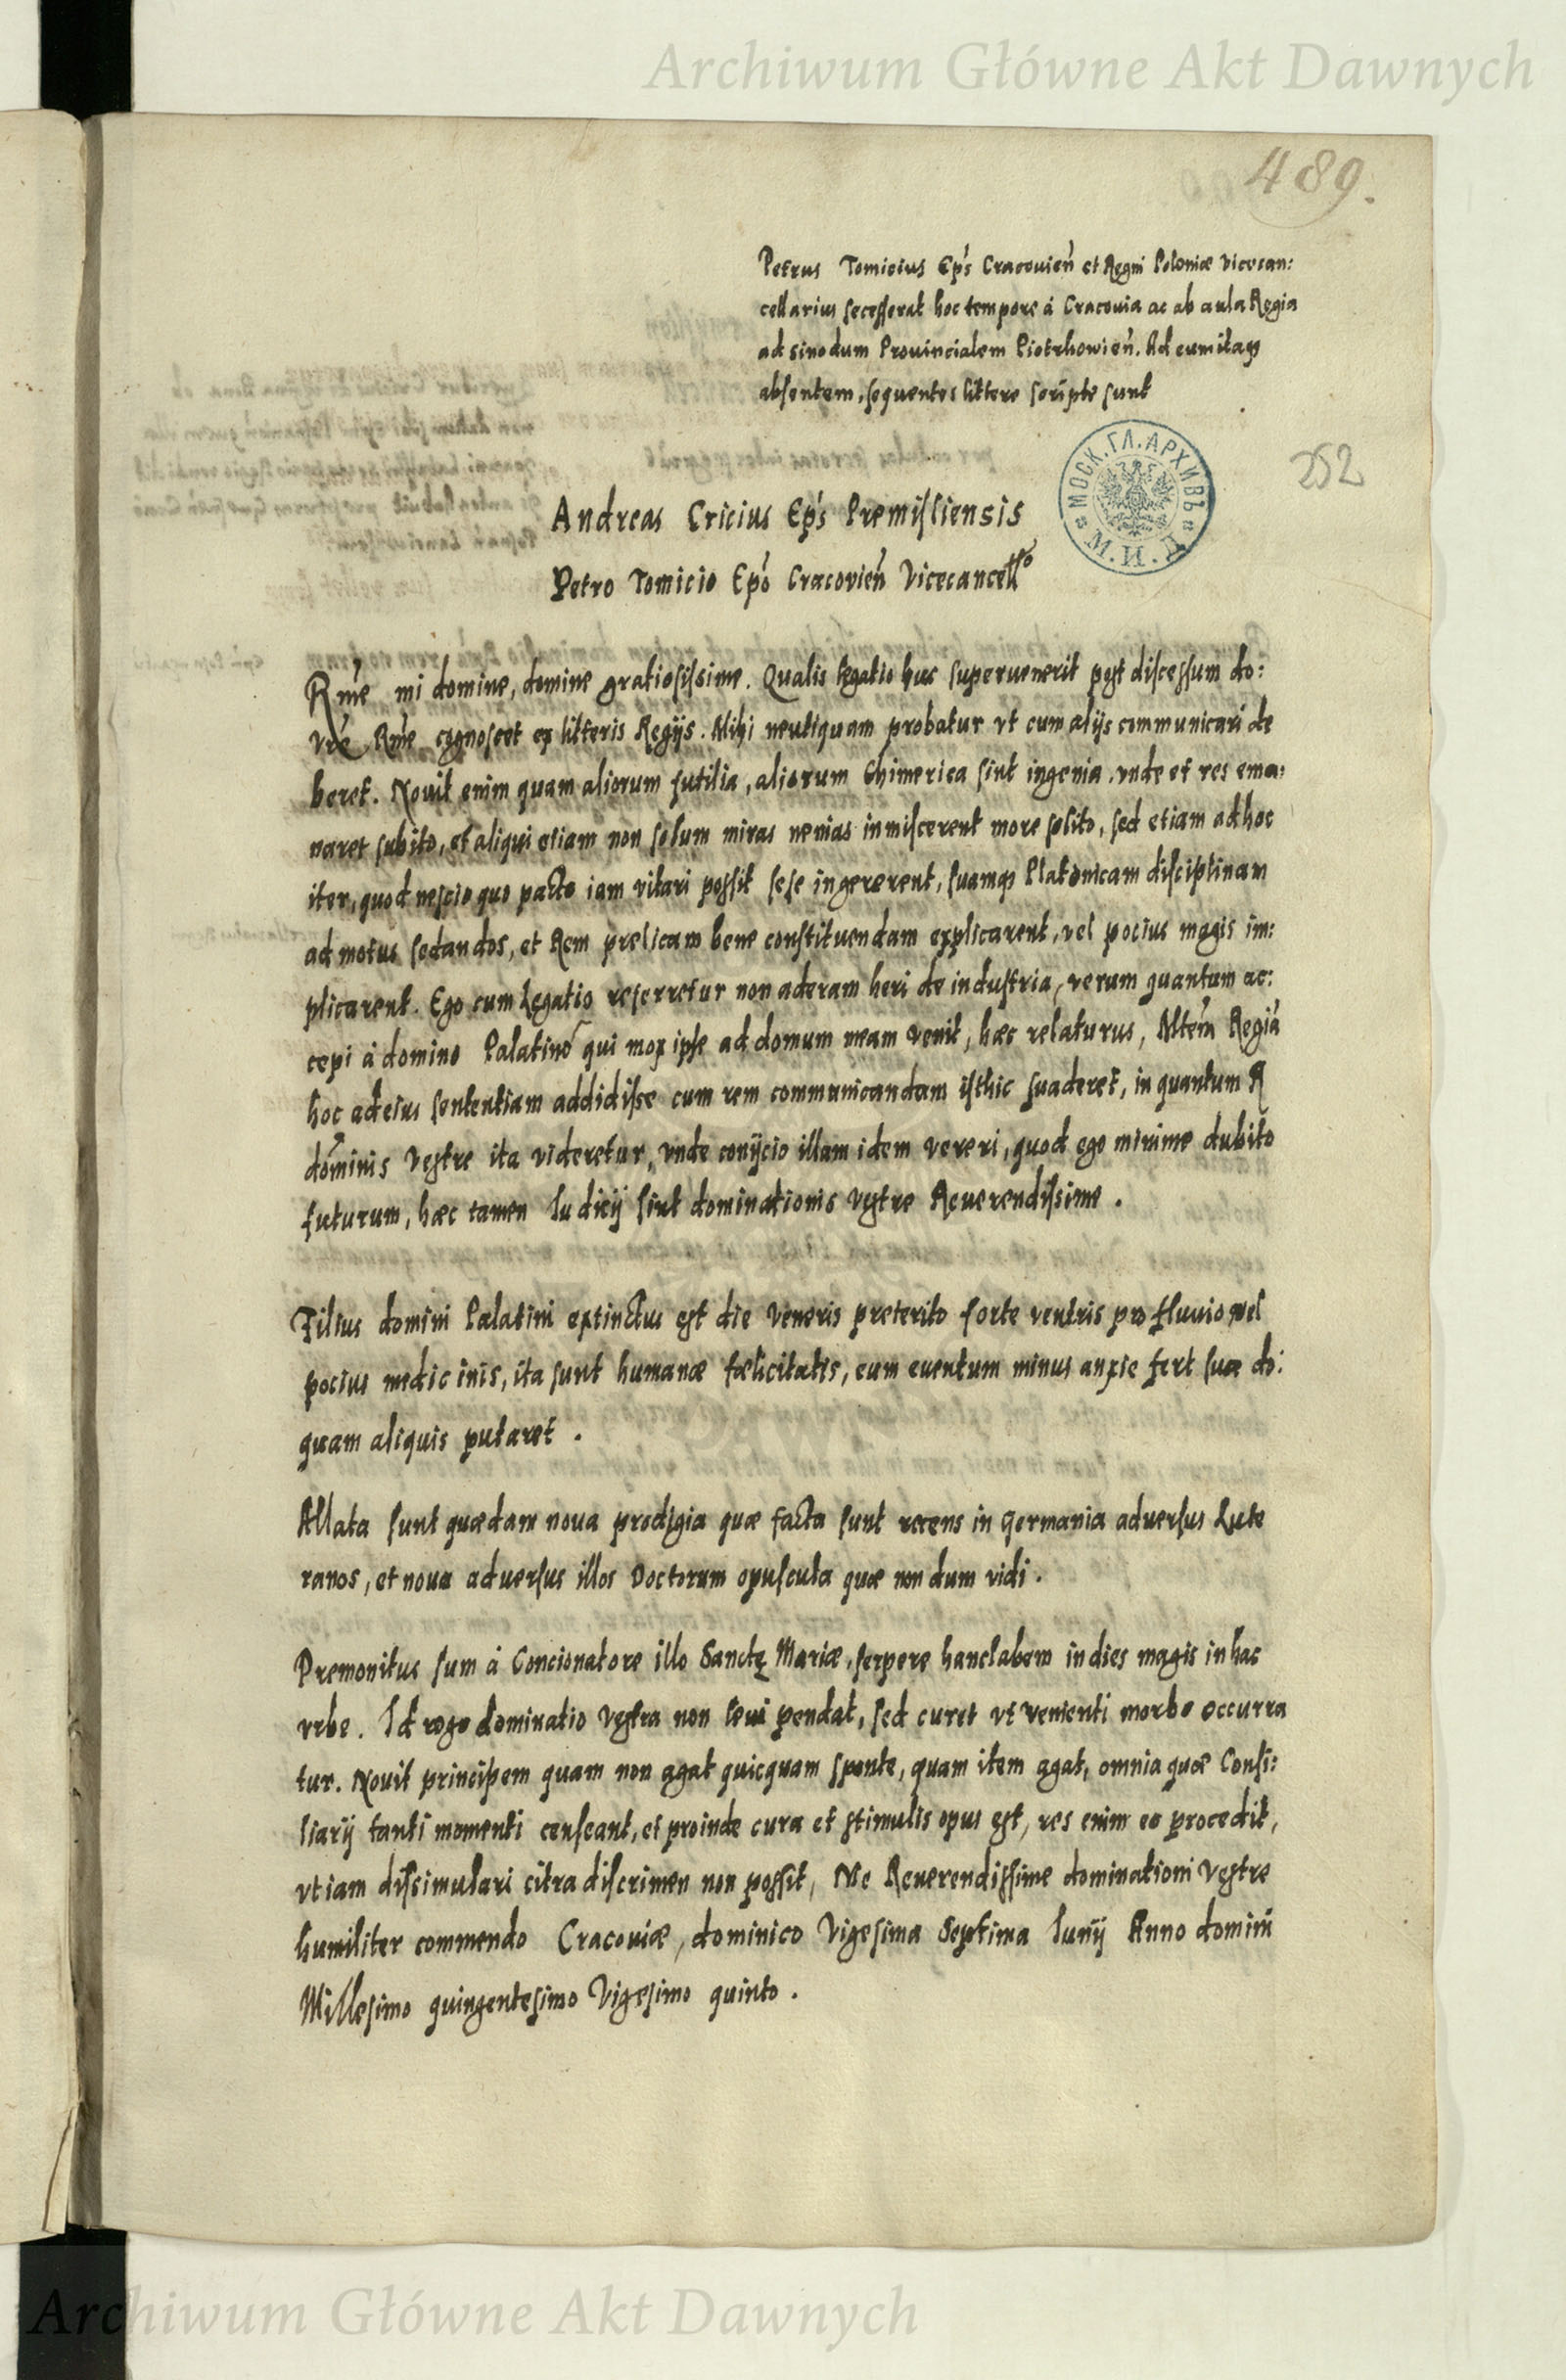 Archiwum Główne Akt Dawnych
489.
Petrus Tomicius Ep̃s Cracovieñ et Regni Poloniæ vicecan:
cellarius secesserat hoc tempore á Cracovia ac ab aula Regia
ad sinodum Provincialem Piotrkowieñ. Ad eum itaq
absentem, sequentes littere scripte sunt
252
МОСК. ГЛ. АРХИВЪ М. И. Д.
Andreas Cricius Ep̃s Premisliensis
Petro Tomicio Ep̃o Cracovieñ Vicecancell̃o
Rm̃e mi domine, domine gratiosissime. Qualis legatio huc supervenerit post discessum do:
vr̃e Rm̃e cognoscet ex litteris Regijs. Mihi neutiquam probatur vt cum alijs communicari de
beret. Novit enim quam aliorum futilia, aliorum Chimerica sint ingenia. vnde et res ema:
naret subito, et aliqui etiam non solum miras nenias inmiscerent more solito, sed etiam ad hoc
iter, quod nescio quo pacto iam vitari possit sese ingererent, suamq Platonicam disciplinam
ad motus sedandos, et Rem prelicam bene constituendam explicarent, vel pocius magis im:
plicarent. Ego cum Legatio referretur non aderam heri de industria, verum quantum ac:
cepi á domino Palatino qui mox ipse ad domum meam venit, hæc relaturus, Mtẽm Regiã
hoc ad eius sententiam addidisse cum rem communicandam isthic suaderet, in quantum R
dominis Vestre ita videretur, vnde conijcio illam idem vereri, quod ego minime dubito
futurum, hæc tamen Iudicij sint dominationis Vestre Reverendissime.
Filius domini Palatini extinctus est die Veneris preterito forte ventris profluvio vel
pocius medicinis, ita sunt humanæ fœlicitatis, eum eventum minus anxie fert suæ do:
quam aliquis putaret.
Allata sunt quædam nova prodigia quæ facta sunt recens in Germania adversus Lute
ranos, et nova adversus illos Doctorum opuscula quæ non dum vidi.
Premonitus sum á Concionatore illo Sanctę Mariæ, serpere hanc labem in dies magis in hac
vrbe. Id rogo dominatio Vestra non levi pendat, sed curet vt venienti morbo occurra
tur. Novit principem quam non agat quicquam sponte, quam item agat, omnia quæ Consi:
liarij tanti momenti censeant, et proinde cura et stimulis opus est, res enim eo procedit,
vt iam dissimulari citra discrimen non possit, Me Reverendissime dominationi Vestre
humiliter commendo Cracoviæ, dominico Vigesima Septima Iunij Anno domini
Millesimo quingentesimo Vigesimo quinto.
Archiwum Główne Akt Dawnych